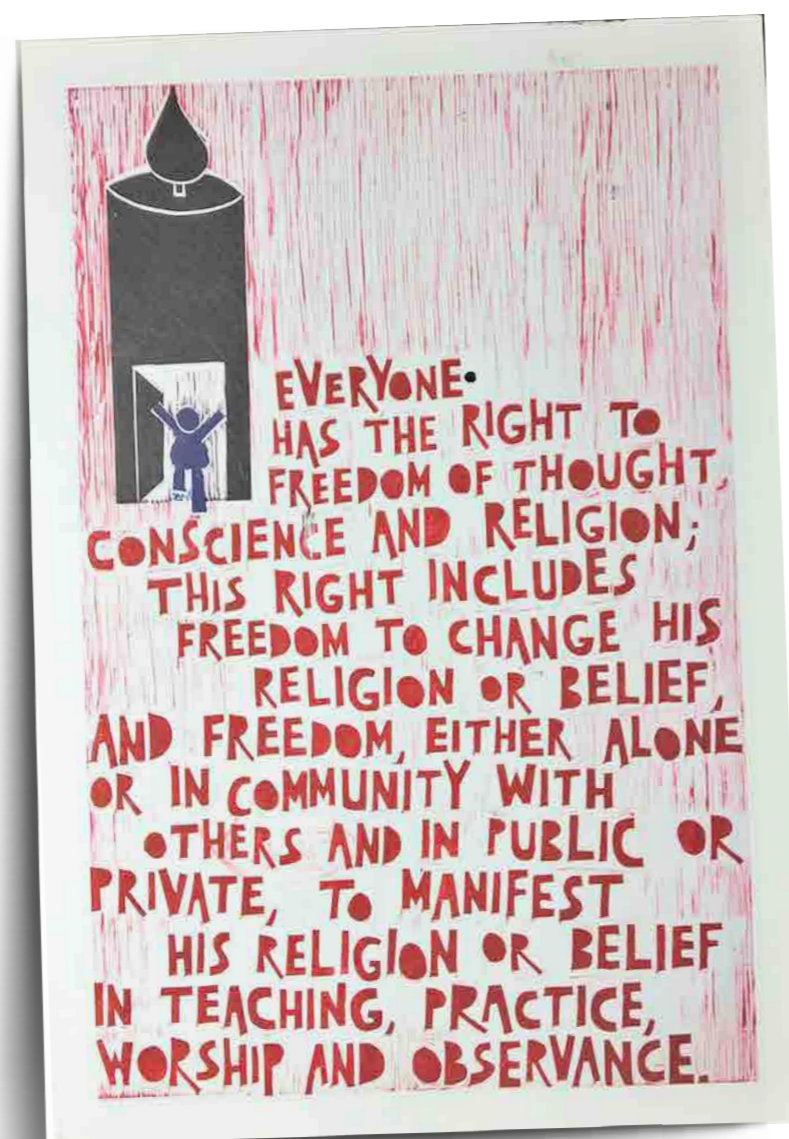 EVERYONE•
HAS THE RIGHT TO
FREEDOM OF THOUGHT,
CONSCIENCE AND RELIGION;
THIS RIGHT INCLUDES
FREEDOM TO CHANGE HIS
RELIGION OR BELIEF,
AND FREEDOM, EITHER ALONE
OR IN COMMUNITY WITH
OTHERS AND IN PUBLIC OR
PRIVATE, TO MANIFEST
HIS RELIGION OR BELIEF
IN TEACHING, PRACTICE,
WORSHIP AND OBSERVANCE.